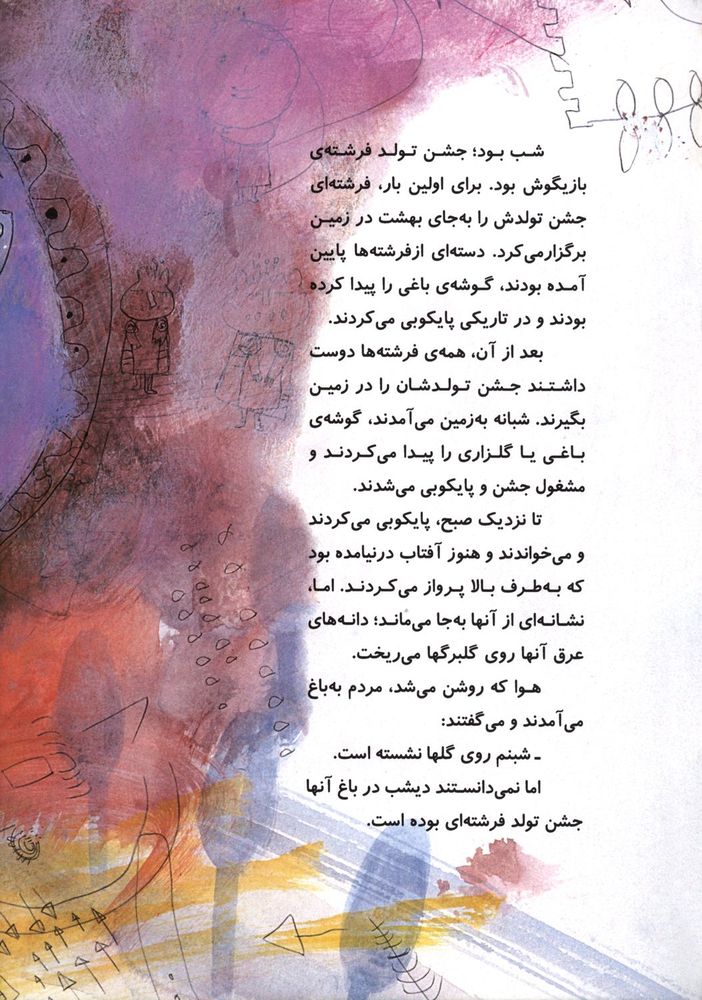 شب بود؛ جشن تولد فرشته‌ی
بازیگوش بود. برای اولین بار، فرشته‌ای
جشن تولدش را به‌جای بهشت در زمین
برگزارمی‌کرد. دسته‌ای ازفرشته‌ها پایین
آمده بودند، گوشه‌ی باغی را پیدا کرده
بودند و در تاریکی پایکوبی می‌کردند.
بعد از آن، همه‌ی فرشته‌ها دوست
داشتند جشن تولدشان را در زمین
بگیرند. شبانه به‌زمین می‌آمدند، گوشه‌ی
باغی یا گلزاری را پیدا می‌کردند و
مشغول جشن و پایکوبی می‌شدند.
تا نزدیک صبح، پایکوبی می‌کردند
و می‌خواندند و هنوز آفتاب درنیامده بود
که به‌طرف بالا پرواز می‌کردند. اما،
نشانه‌ای از آنها به‌جا می‌ماند؛ دانه‌های
عرق آنها روی گلبرگها می‌ریخت.
هوا که روشن می‌شد، مردم به‌باغ
می‌آمدند و می‌گفتند:
ـ شبنم روی گلها نشسته است.
اما نمی‌دانستند دیشب در باغ آنها
جشن تولد فرشته‌ای بوده است.